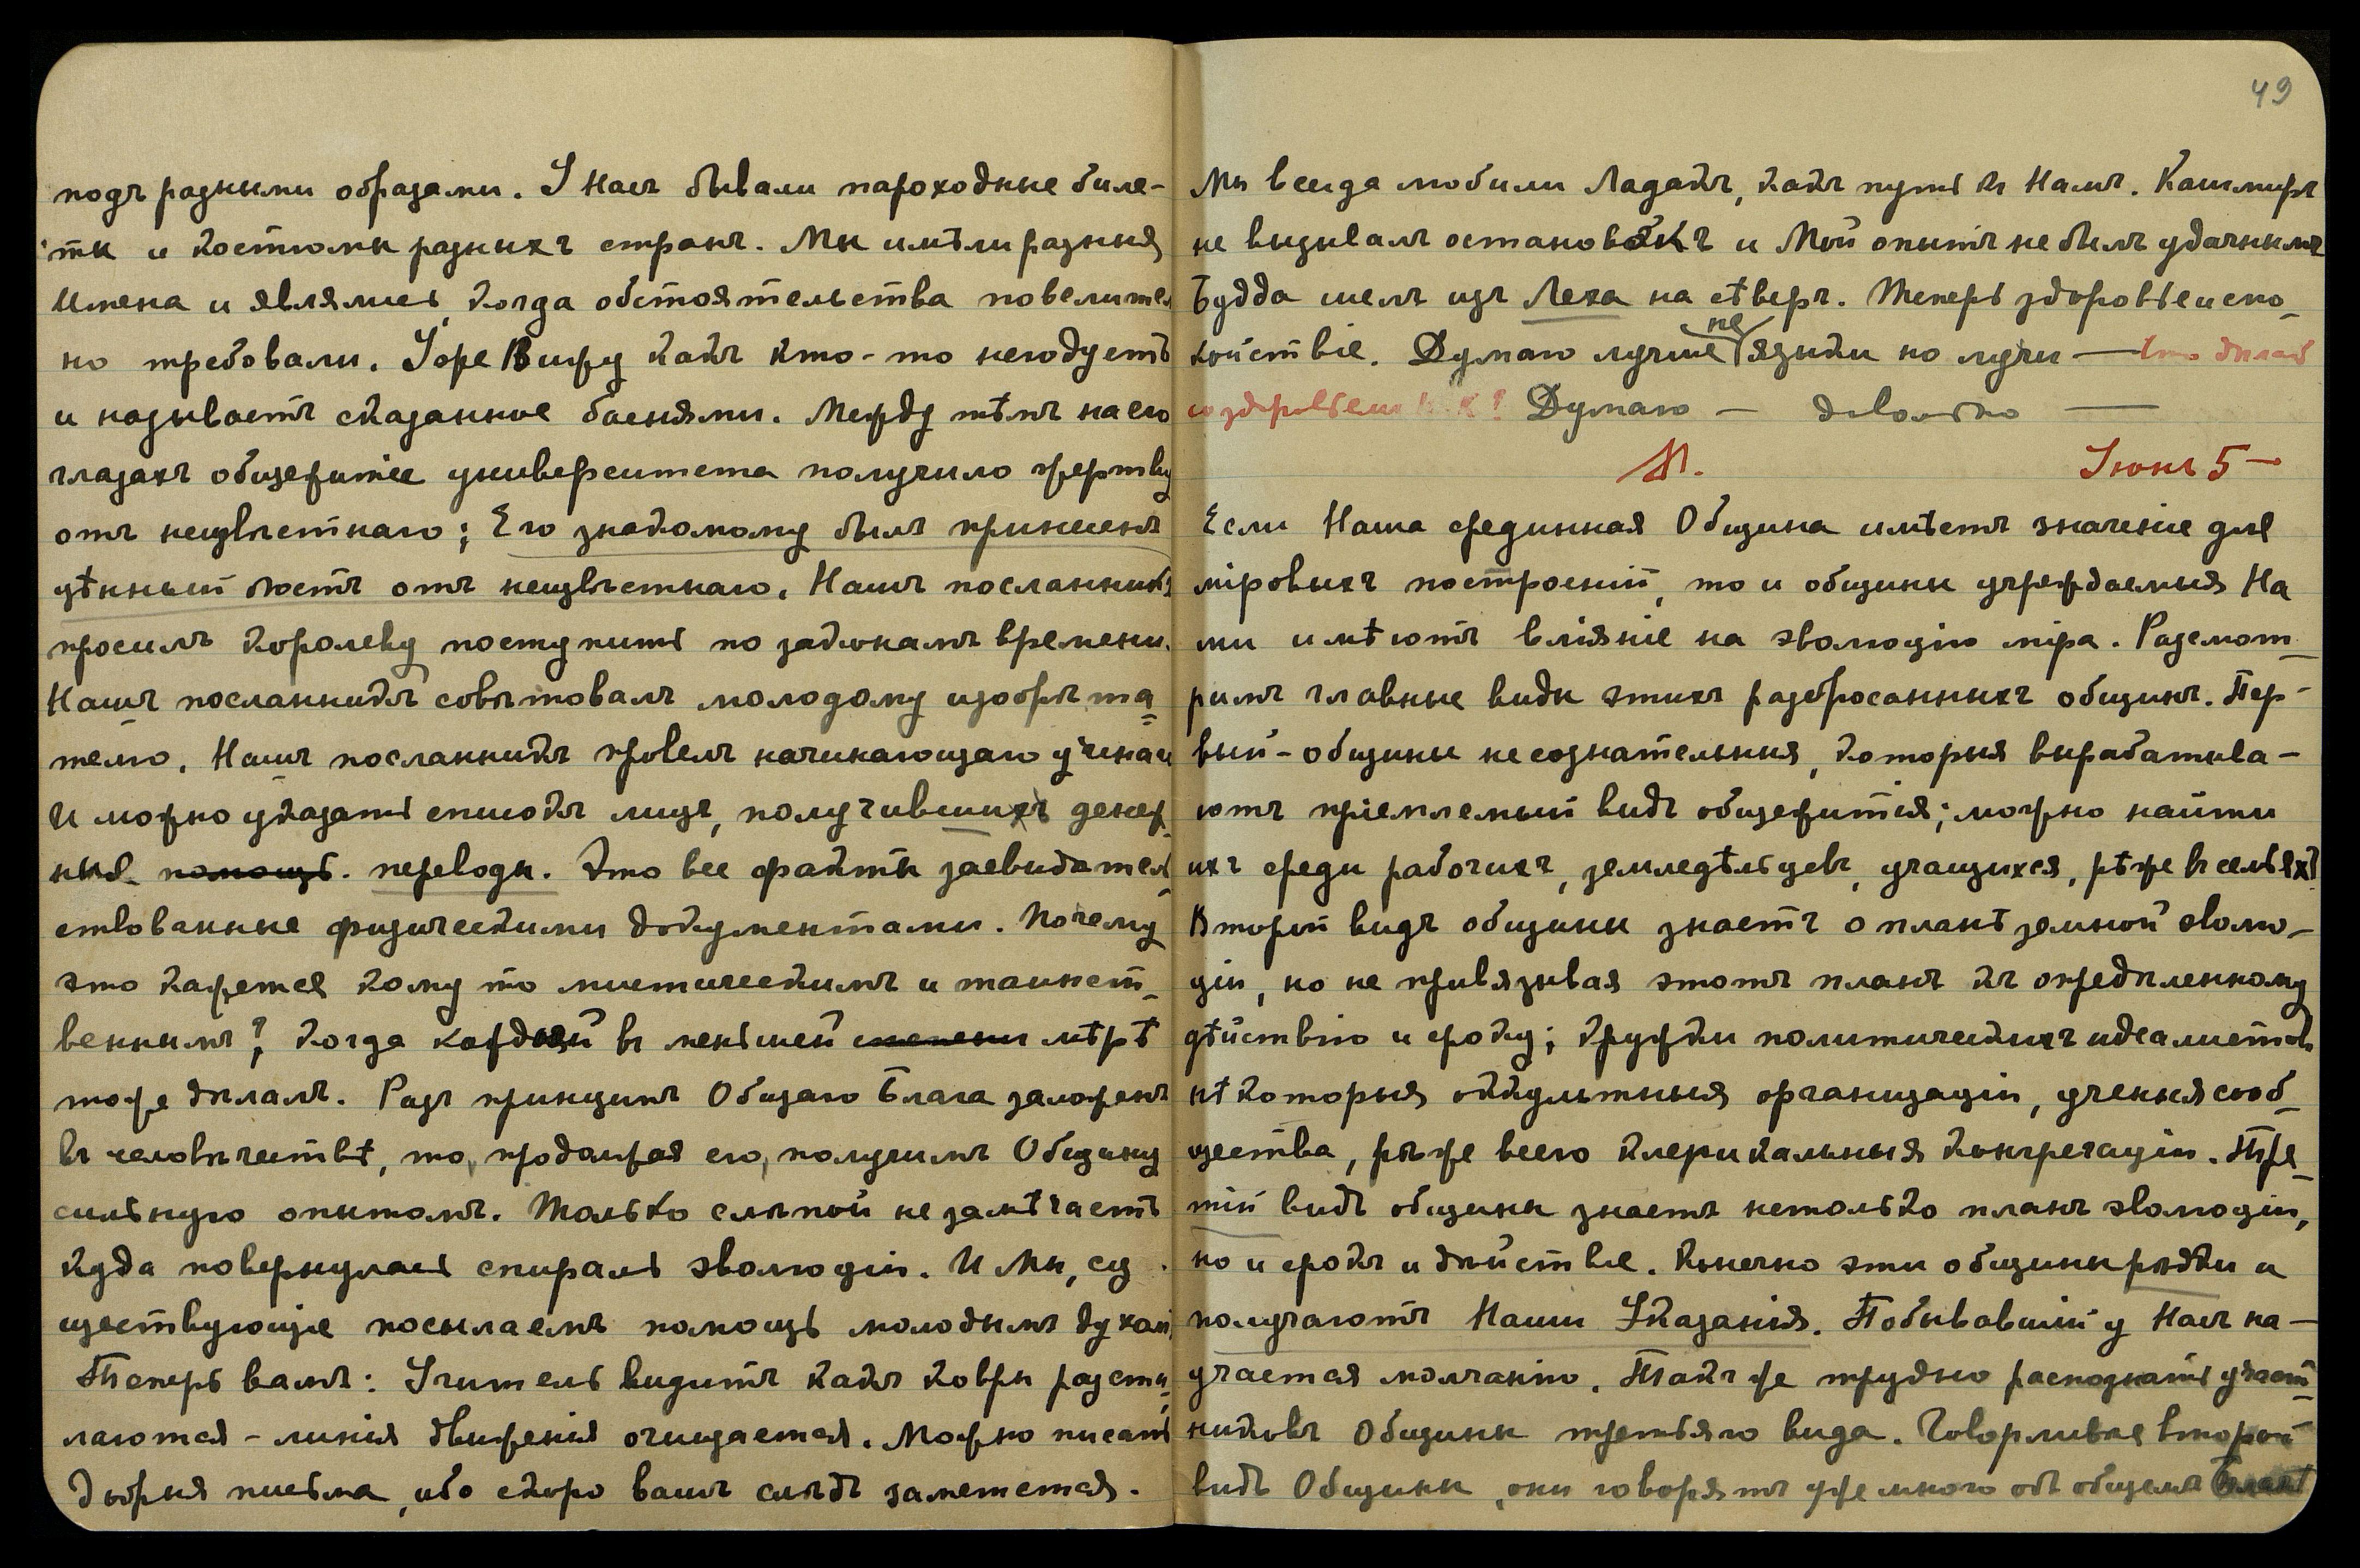 подъ разными образами. У Насъ бывали пароходные биле-
ты и костюмы разныхъ странъ. Мы имѣли разныя
имена и являлись, когда обстоятельства повелитель
но требовали. Уоре Вижу какъ кто-то негодуетъ
и называетъ сказанное баснями. Между тѣмъ на его
глазахъ общежитіе университета получило жертву
отъ неизвѣстнаго; Его знакомому былъ принесенъ
цѣнный бюстъ отъ неизвѣстнаго. Нашъ посланникъ
просилъ королеву поступить по законамъ времени.
Нашъ посланникъ совѣтовалъ молодому изобрѣта=
телю. Нашъ посланникъ провелъ начинающаго учена
И можно указать списокъ лицъ, получившихъ денеж
ные помощь. переводы. Это все факты засвидѣтель
ствованные физическими документами. Почему
это кажется кому то мистическимъ и таинст_
веннымъ?, когда каждый въ меньшей степени мѣрѣ
тоже дѣлалъ. Разъ принципъ Общаго Блага заложенъ
въ человѣчествѣ, то, продолжая его, получимъ Общину
сильную опытомъ. Только слѣпой не замѣчаетъ
куда повернулась спираль эволюціи. И Мы, су
ществующіе посылаемъ помощь молодымъ духомъ
Теперь вамъ: Учитель видитъ какъ ковры разсти_
лаются - линія движенія очищается. Можно писать
добрыя письма, ибо скоро вашъ слѣдъ заметется.
49
Мы всегда любили Ладакъ, какъ путь къ Намъ. Кашмиръ
не вызывалъ остановокъ и Мой опытъ не былъ удачнымъ
Будда шелъ изъ Леха на сѣверъ. Теперь здоровье и спо_
койствіе. Думаю лучше не языки но лучи — что дѣлать
со здоровьемъ Думаю — довольно —
Іюнь 5 —
Если Наша срединная Община имѣетъ значеніе для
міровыхъ построеній, то и общины учреждаемыя На
ми имѣютъ вліяніе на эволюцію міра. Разсмот_
римъ главные виды этихъ разбросанныхъ общинъ. Пер-
вый - общины несознательныя, которыя вырабатыва-
ютъ пріемлемый видъ общежитія; можно найти
ихъ среди рабочихъ, земледѣльцевъ, учащихся, рѣже въ семьяхъ
Второй видъ общины знаетъ о планѣ земной эволю-
ціи, но не привязывая этотъ планъ къ опредѣленному
дѣйствію и сроку; кружки политическихъ идеалистовъ
нѣкоторыя оккультныя организаціи, ученыя сооб_
щества, рѣже всего клерикальныя конгрегаціи. Тре_
тій видъ общины знаетъ нетолько планъ эволюціи,
но и срокъ и дѣйствіе. Конечно эти общины рѣдки и
получаютъ Наши Указанія. Побывавшій у Насъ на-
учается молчанію. Также трудно распознать участ_
никовъ Общины третьяго вида. Говорливая второй
видъ Общины, они говорятъ уже много объ общемъ Благѣ